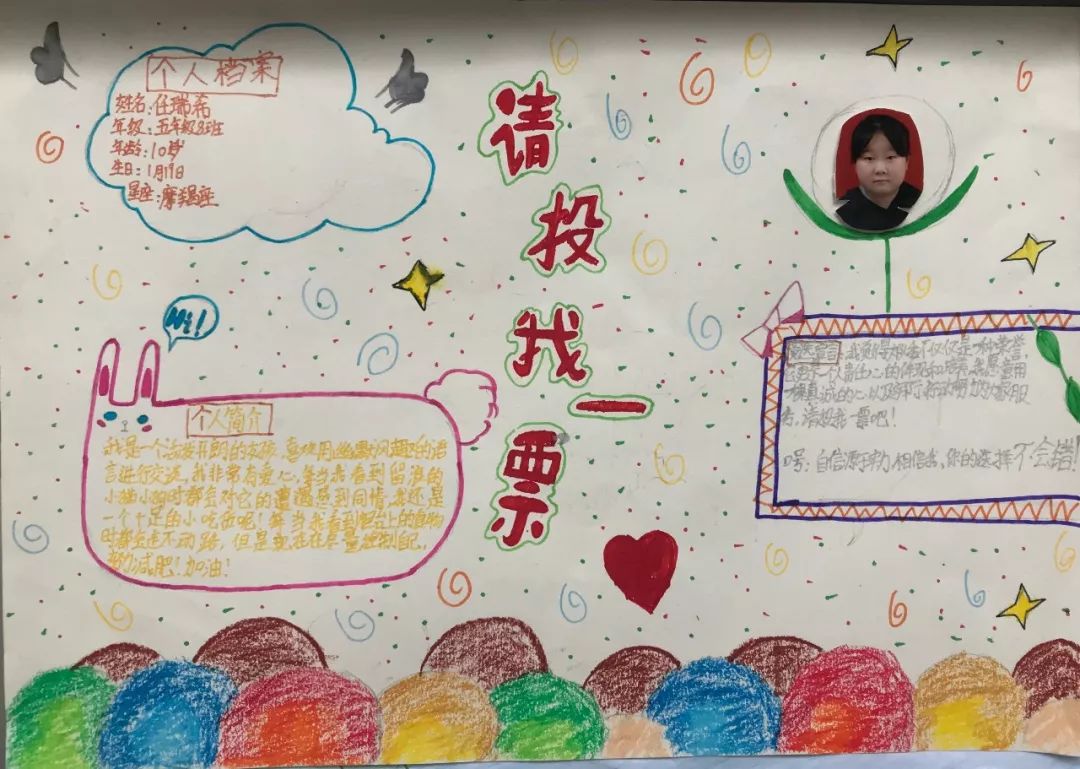 个人档案
姓名:任瑞希
年级:五年级8班
年龄:10岁
生日:1月19日
星座:摩羯座
请投我一票
Hi!
个人简介
我是一个活泼开朗的女孩,喜欢用幽默风趣的语
言进行交谈,我非常有爱心,每当我看到留浪的
小猫小狗时都会对它的遭遇感到同情,我还是
一个十足的小吃货呢!每当我看到路上的食物
时都会走不动路,但是现在在尽量控制自己,
努力减肥!加油!
竞选宣言:我觉得根本不仅仅是一种荣誉,
一个责任心的体现和培养,我愿意用
一颗真诚的心以及努力为大家服
务,请投我一票吧!
号:自信源于努力,相信我,你的选择不会错!